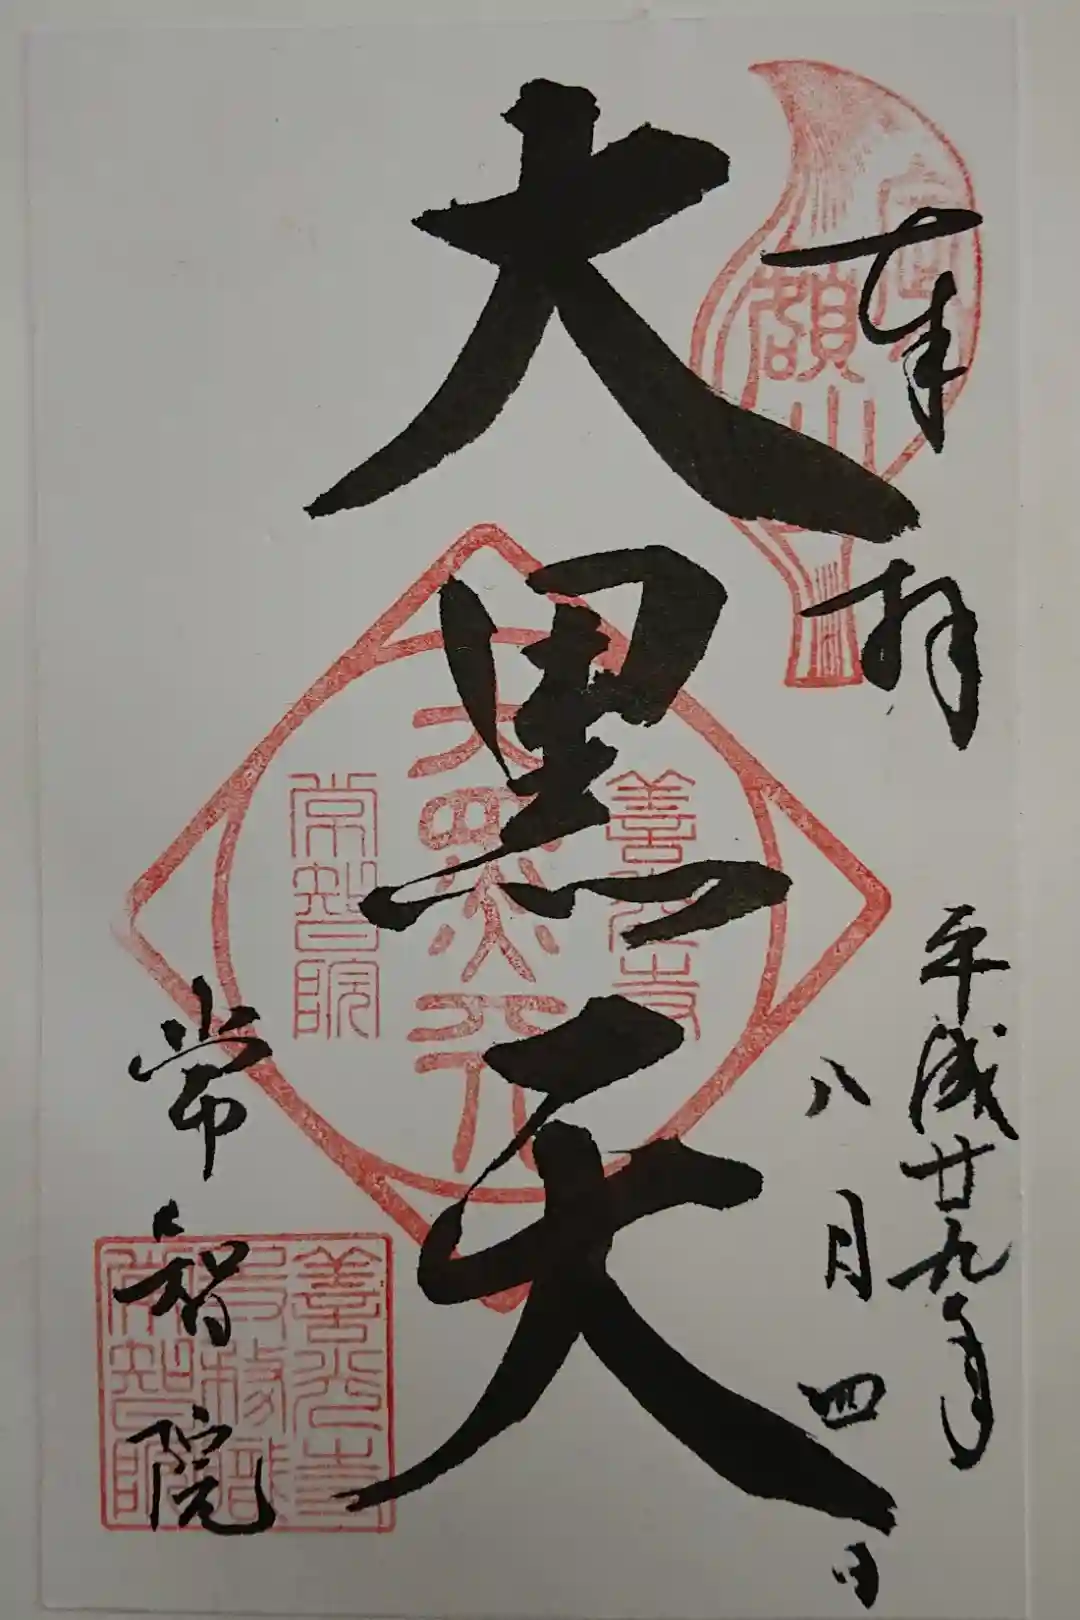 奉拝
平成廿九年
八月四日
定額山
大黒天
善光寺
大黒天
常智院
常智院
善光寺
寺務職
常智院